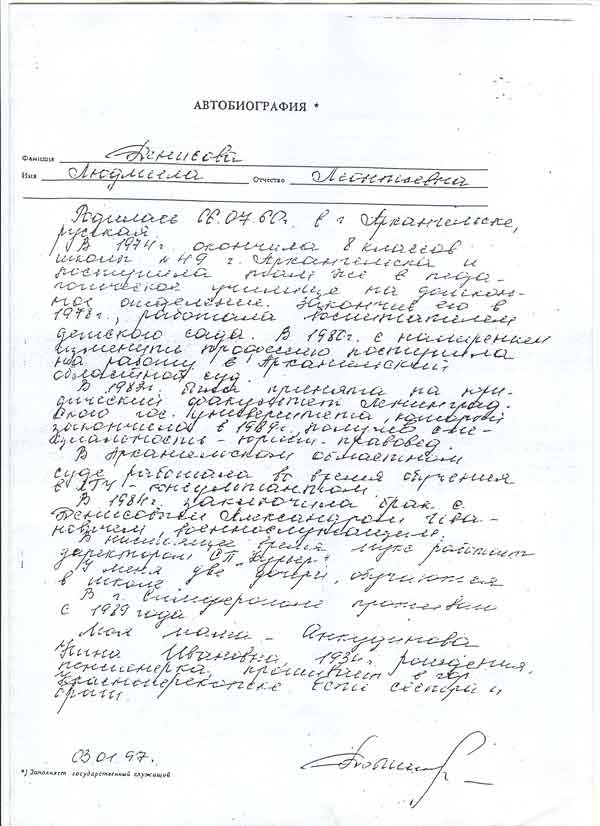 АВТОБИОГРАФИЯ *
Фамилия Денисова
Имя Людмила Отчество Леонтьевна
Родилась 06.07.60г. в г Архангельске,
русская.
В 1974г. окончила 8 классов
школы № 49 г. Архангельска и
поступила там же в педа-
гогическое училище на дошколь-
ное отделение. Закончив его в
1978г., работала воспитателем
детского сада. В 1980г. с намерением
изменить профессию поступила
на работу в Архангельский
областной суд.
В 1983г. была принята на юри-
дический факультет Ленинград-
ского гос. университета, который
закончила в 1989г., получив спе-
циальность - юрист-правовед.
В Архангельском областном
суде работала во время обучения
в ЛГУ - консультантом.
В 1984г. заключила брак с
Денисовым Александром Ива-
новичем военнослужащим.
В настоящее время муж работает
директором СП "Курьер".
У меня две дочери, обучаются
в школе.
В г. Симферополе проживаю
с 1989 года.
Моя мать - Анкудинова
Нина Ивановна, 1934г. рождения,
пенсионерка, проживает в гор
Красноперекопске. Есть сестра и
братья.
03 01 97.
*) Заполняет государственный служащий